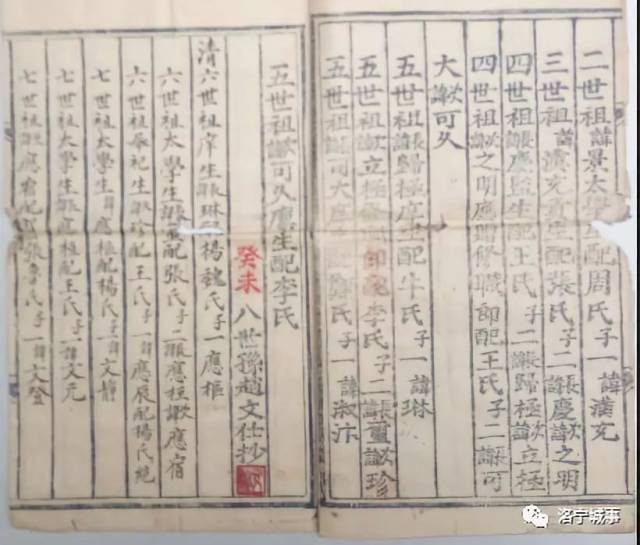 二世祖諱景太學生配周氏子一諱漢充
三世祖諱漢充貢生配張氏子二長諱慶次諱之明
四世祖長諱慶監生配王氏子二長諱歸極次諱立極
四世祖次諱之明應贈修職郎配王氏子二長諱可
大次諱可久
五世祖長諱歸極庠生配牛氏子一諱琳
五世祖次諱立極配李氏子二長諱璽次諱珍
五世祖長諱可大庠生配氏子一諱淑汴
五世祖次諱可久廩生配李氏
癸未八世孫趙文仕抄
清六世祖庠生諱琳配楊魏氏子一應樞
六世祖太學生諱璽配張氏子二長諱應柱次諱應宿
六世祖奉祀生諱珍配王氏子一諱應辰配楊氏絕
七世祖太學生諱應樞配楊氏子一諱文靜
七世祖太學生諱應柱配王氏子一諱文元
七世祖次諱應宿配張李氏子一諱文登
洛宁城事